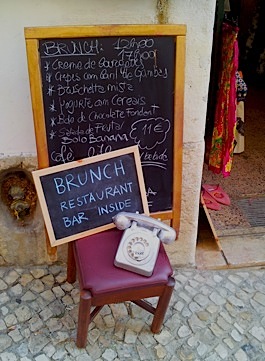 BRUNCH: 12h00
17h00
* Creme de
* Crepes com
* Bruschetta mista
* Iogurte com Cereais
* Bolo de Chocolate Fondant +
Salada de Fruta/
Bolo Banana
11€
BRUNCH
RESTAURANT
BAR INSIDE